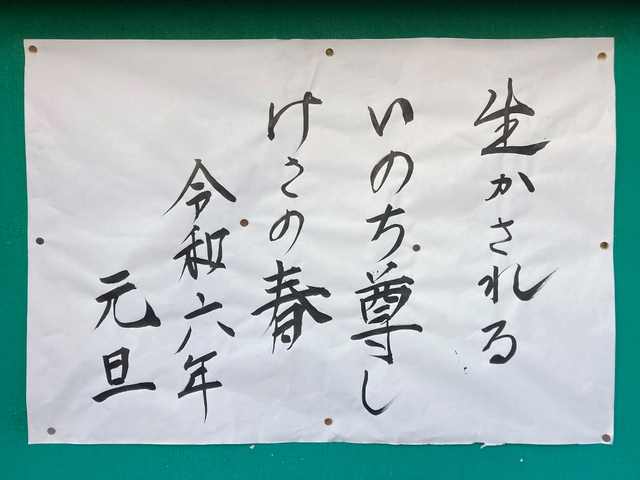 生かされる
いのち尊し
けさの春
令和六年
元旦